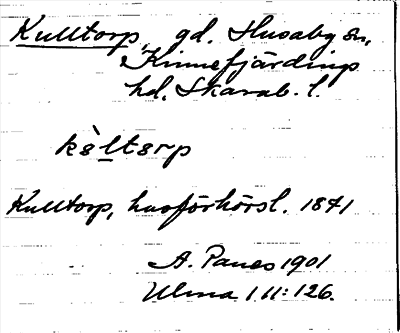 Kulltorp, gd. Husaby sn,
Kinnefjärdings
hd. Skarab. l.
kòltorp
Kulltorp, husförhörsl. 1841
A. Panes 1901
Ulma 1.11:126.